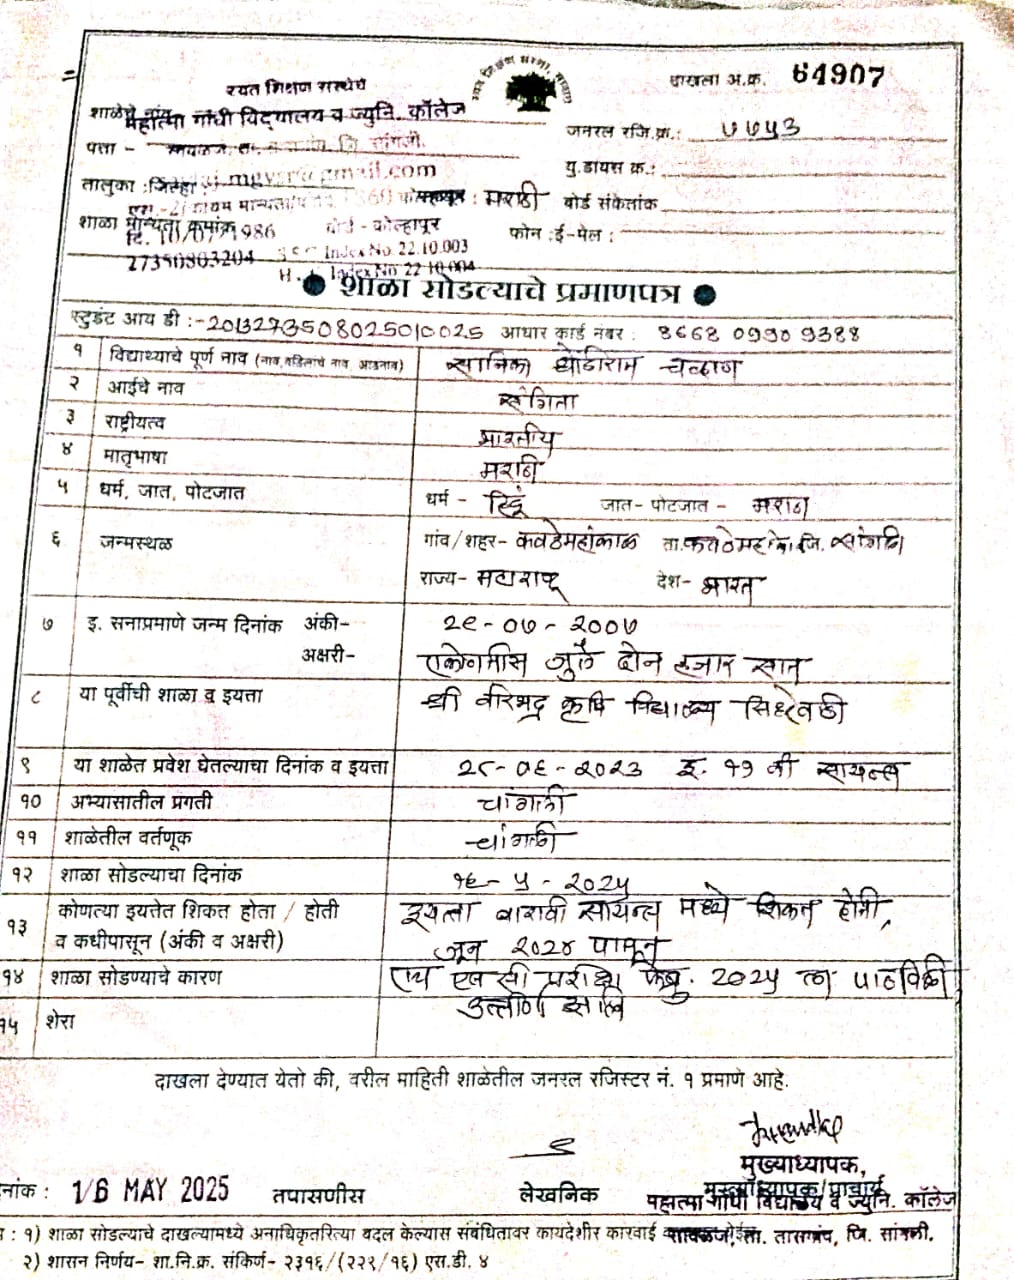 रयत शिक्षण संस्थेचे
दाखला अ.क. 64907
शाळेचे नाव महात्मा गांधी विद्यालय व ज्युनि. कॉलेज
जनरल रजि.क्र.: ७७५३
पत्ता - जि. सांगली.
यु.डायस क्र.:
तालुका : जिल्हा : @gmail.com
माध्यम : मराठी बोर्ड संकेतांक
शाळा मान्यता क्रमांक बोर्ड - कोल्हापूर फोन : ई-मेल :
दि. 10/07/1986 Index No. 22.10.003
27350803204 Index No 22 10 004
शाळा सोडल्याचे प्रमाणपत्र
स्टुडंट आय डी :- 2013273508025010025 आधार कार्ड नंबर : 8668 0990 9388
१ विद्यार्थ्याचे पूर्ण नाव (नाव, वडिलांचे नाव, आडनाव) सानिका धोंडीराम चव्हाण
२ आईचे नाव संगिता
३ राष्ट्रीयत्व भारतीय
४ मातृभाषा मराठी
५ धर्म, जात, पोटजात धर्म - हिंदू जात- पोटजात - मराठा
६ जन्मस्थळ गांव/शहर- कवठेमहांकाळ ता. कवठेमहांकाळ जि. सांगली
राज्य- महाराष्ट्र देश- भारत
७ इ. सनाप्रमाणे जन्म दिनांक अंकी- २९-०७-२००७
अक्षरी- एकोणतीस जुलै दोन हजार सात
८ या पूर्वीची शाळा व इयत्ता श्री विरभद्र कृषि विद्यालय
९ या शाळेत प्रवेश घेतल्याचा दिनांक व इयत्ता २८-०६-२०२३ इ. ११ वी सायन्स
१० अभ्यासातील प्रगती चांगली
११ शाळेतील वर्तणूक चांगली
१२ शाळा सोडल्याचा दिनांक १६-५-२०२५
१३ कोणत्या इयत्तेत शिकत होता / होती इयत्ता बारावी सायन्स मध्ये शिकत होती,
व कधीपासून (अंकी व अक्षरी) जून २०२४ पासून
१४ शाळा सोडण्याचे कारण एच एस सी परीक्षा फेब्रु. २०२५ ला पाठविली
उत्तीर्ण झाली
१५ शेरा
दाखला देण्यात येतो की, वरील माहिती शाळेतील जनरल रजिस्टर नं. १ प्रमाणे आहे.
मुख्याध्यापक,
नांक : 16 MAY 2025 तपासणीस लेखनिक मुख्याध्यापक/प्राचार्य
महात्मा गांधी विद्यालय व ज्युनि. कॉलेज
: १) शाळा सोडल्याचे दाखल्यामध्ये अनाधिकृतरित्या बदल केल्यास संबंधितावर कायदेशीर कारवाई सावळज, ता. तासगांव, जि. सांगली.
२) शासन निर्णय- शा.नि.क्र. संकिर्ण- २३१६/(२२२/१६) एस.डी. ४